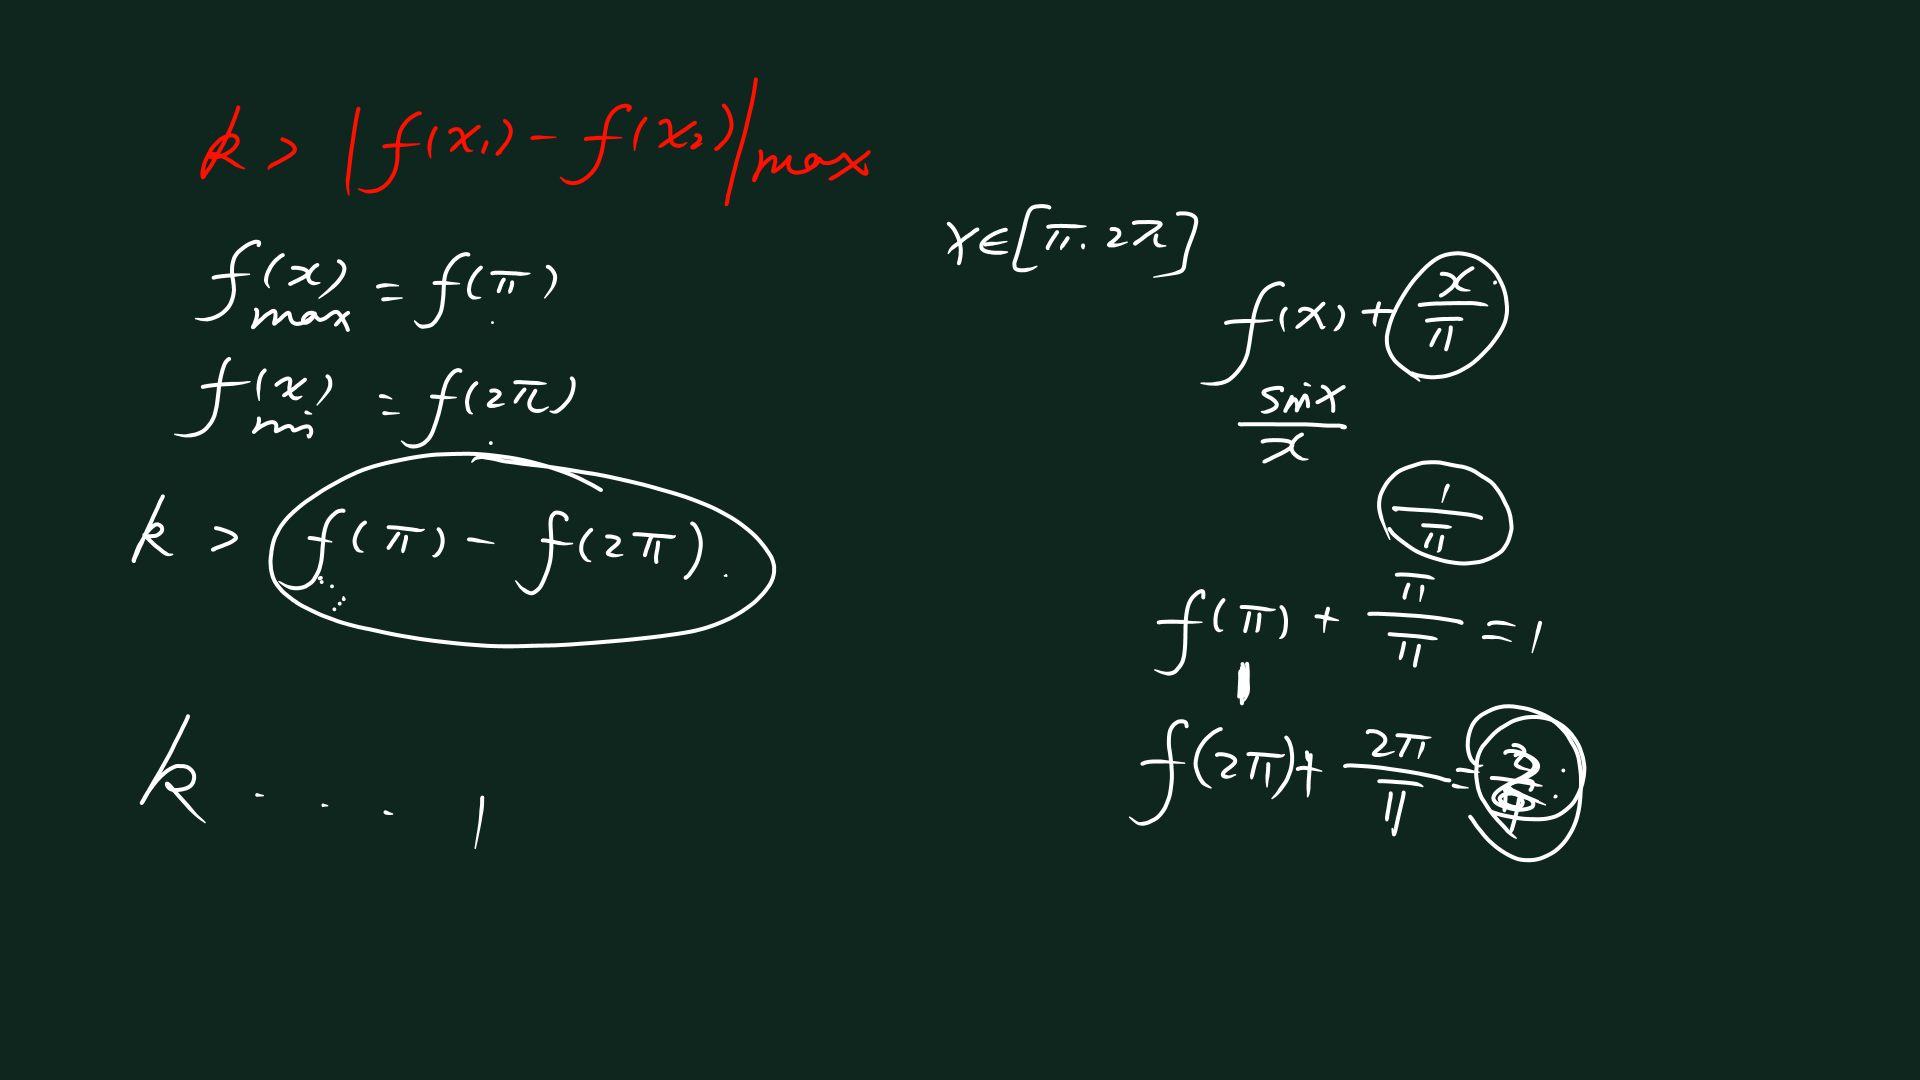 k > |f(x₁) - f(x₂)|max
f(x)max = f(π)
f(x)min = f(2π)
k > f(π) - f(2π)
k . . . 1
x∈[π. 2π]
f(x) + x/π
sinx/x
1/π
f(π) + π/π = 1
f(2π) + 2π/π =